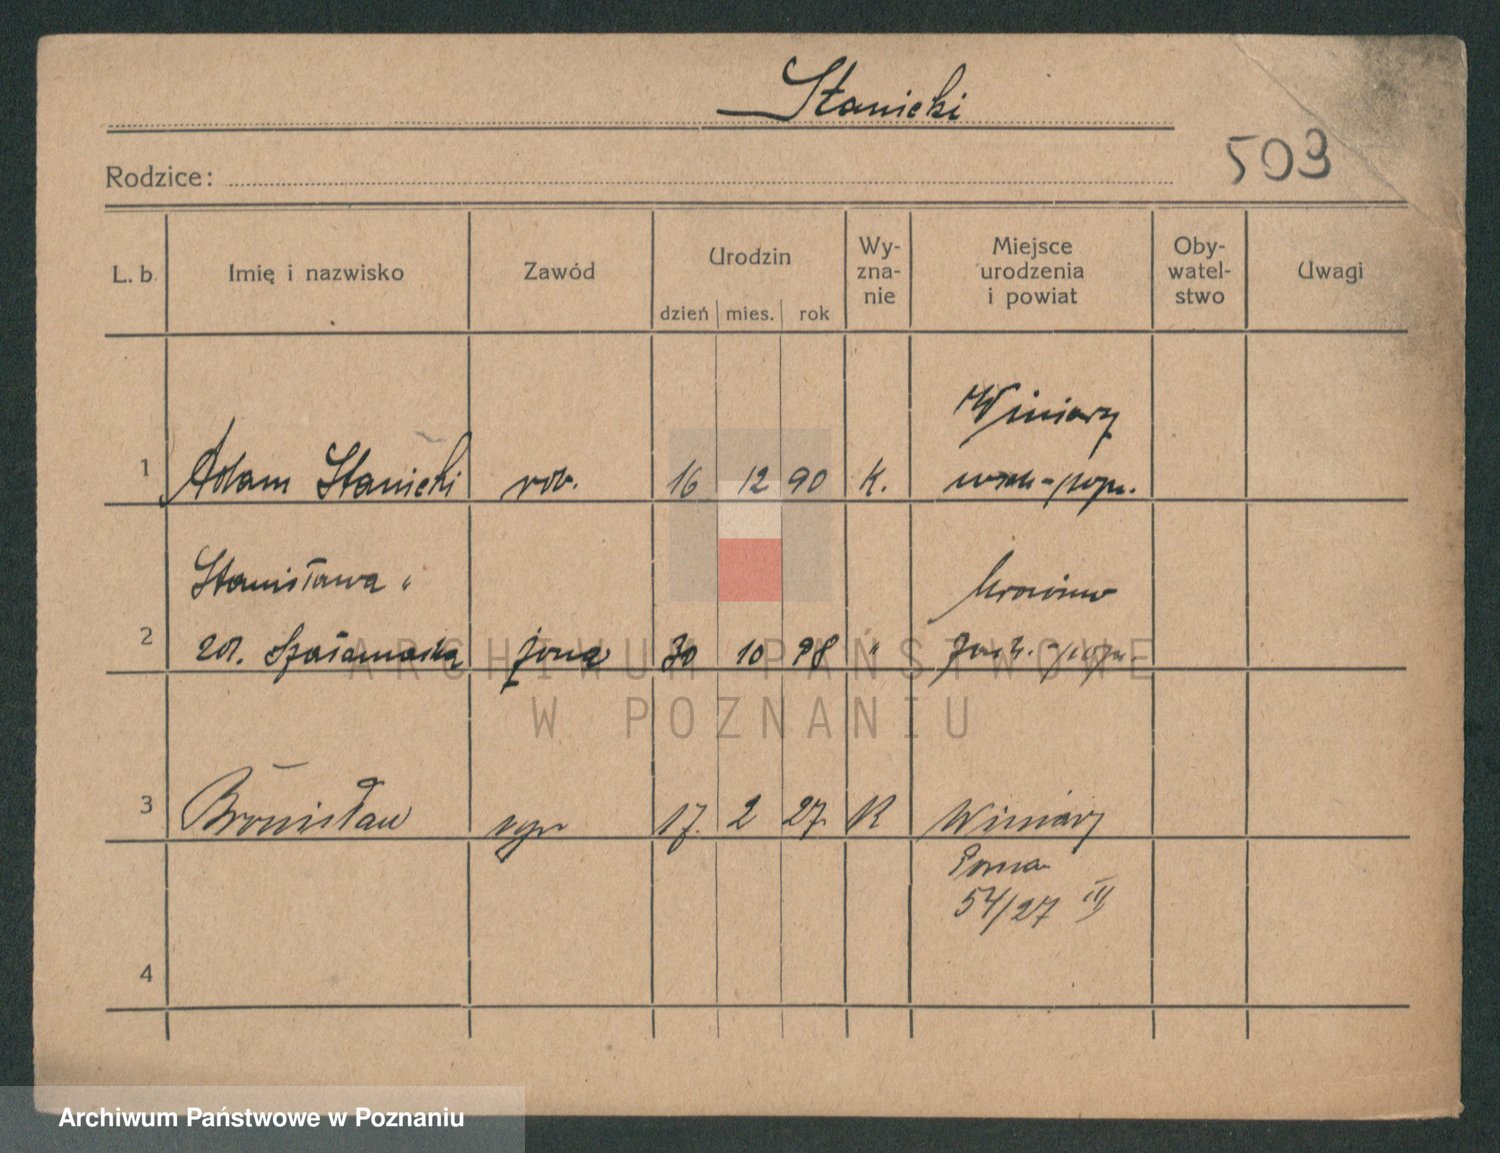 Stanicki
503
Rodzice:
L. b. Imię i nazwisko Zawód Urodzin dzień mies. rok Wy-zna-nie Miejsce urodzenia i powiat Oby-watel-stwo Uwagi
Winiary
1 Adam Stanicki rob. 16 12 90 K.
Stanisława "
2 żona 30 10 98 "
3 Bronisław 17. 2 27. K Winiary
54/27 III
4
ARCHIWUM PAŃSTWOWE
W POZNANIU
Archiwum Państwowe w Poznaniu